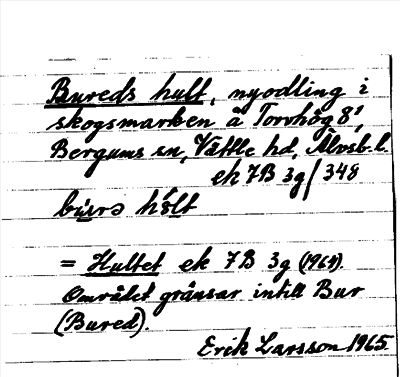 Bureds hult, nyodling i
skogsmarken å Torvhög 8¹,
Bergums sn, Vättle hd, Älvsb. l.
ek 7B 3g/348
bùrə hólt
= Hultet ek 7B 3g (1964).
Området gränsar intill Bur
(Bured).
Erik Larsson 1965.